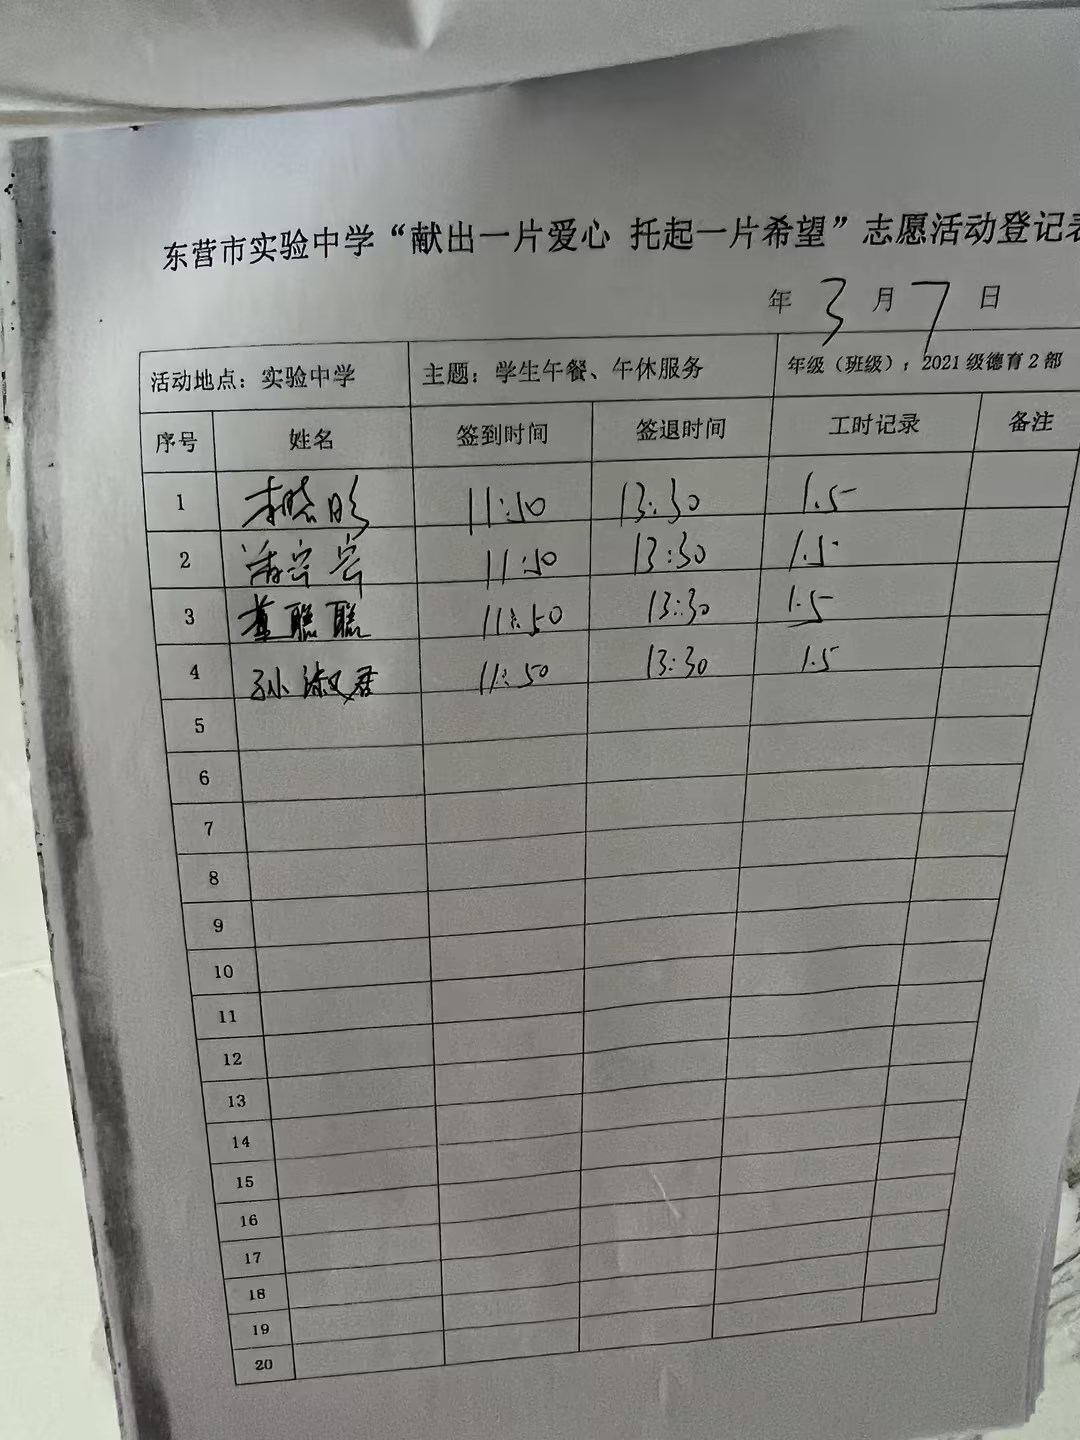 东营市实验中学“献出一片爱心 托起一片希望”志愿活动登记表
年 3 月 7 日
活动地点：实验中学 主题：学生午餐、午休服务 年级（班级）：2021级德育2部
序号 姓名 签到时间 签退时间 工时记录 备注
1 11:50 13:30 1.5
2 11:50 13:30 1.5
3 董聪聪 11:50 13:30 1.5
4 孙淑君 11:50 13:30 1.5
5
6
7
8
9
10
11
12
13
14
15
16
17
18
19
20